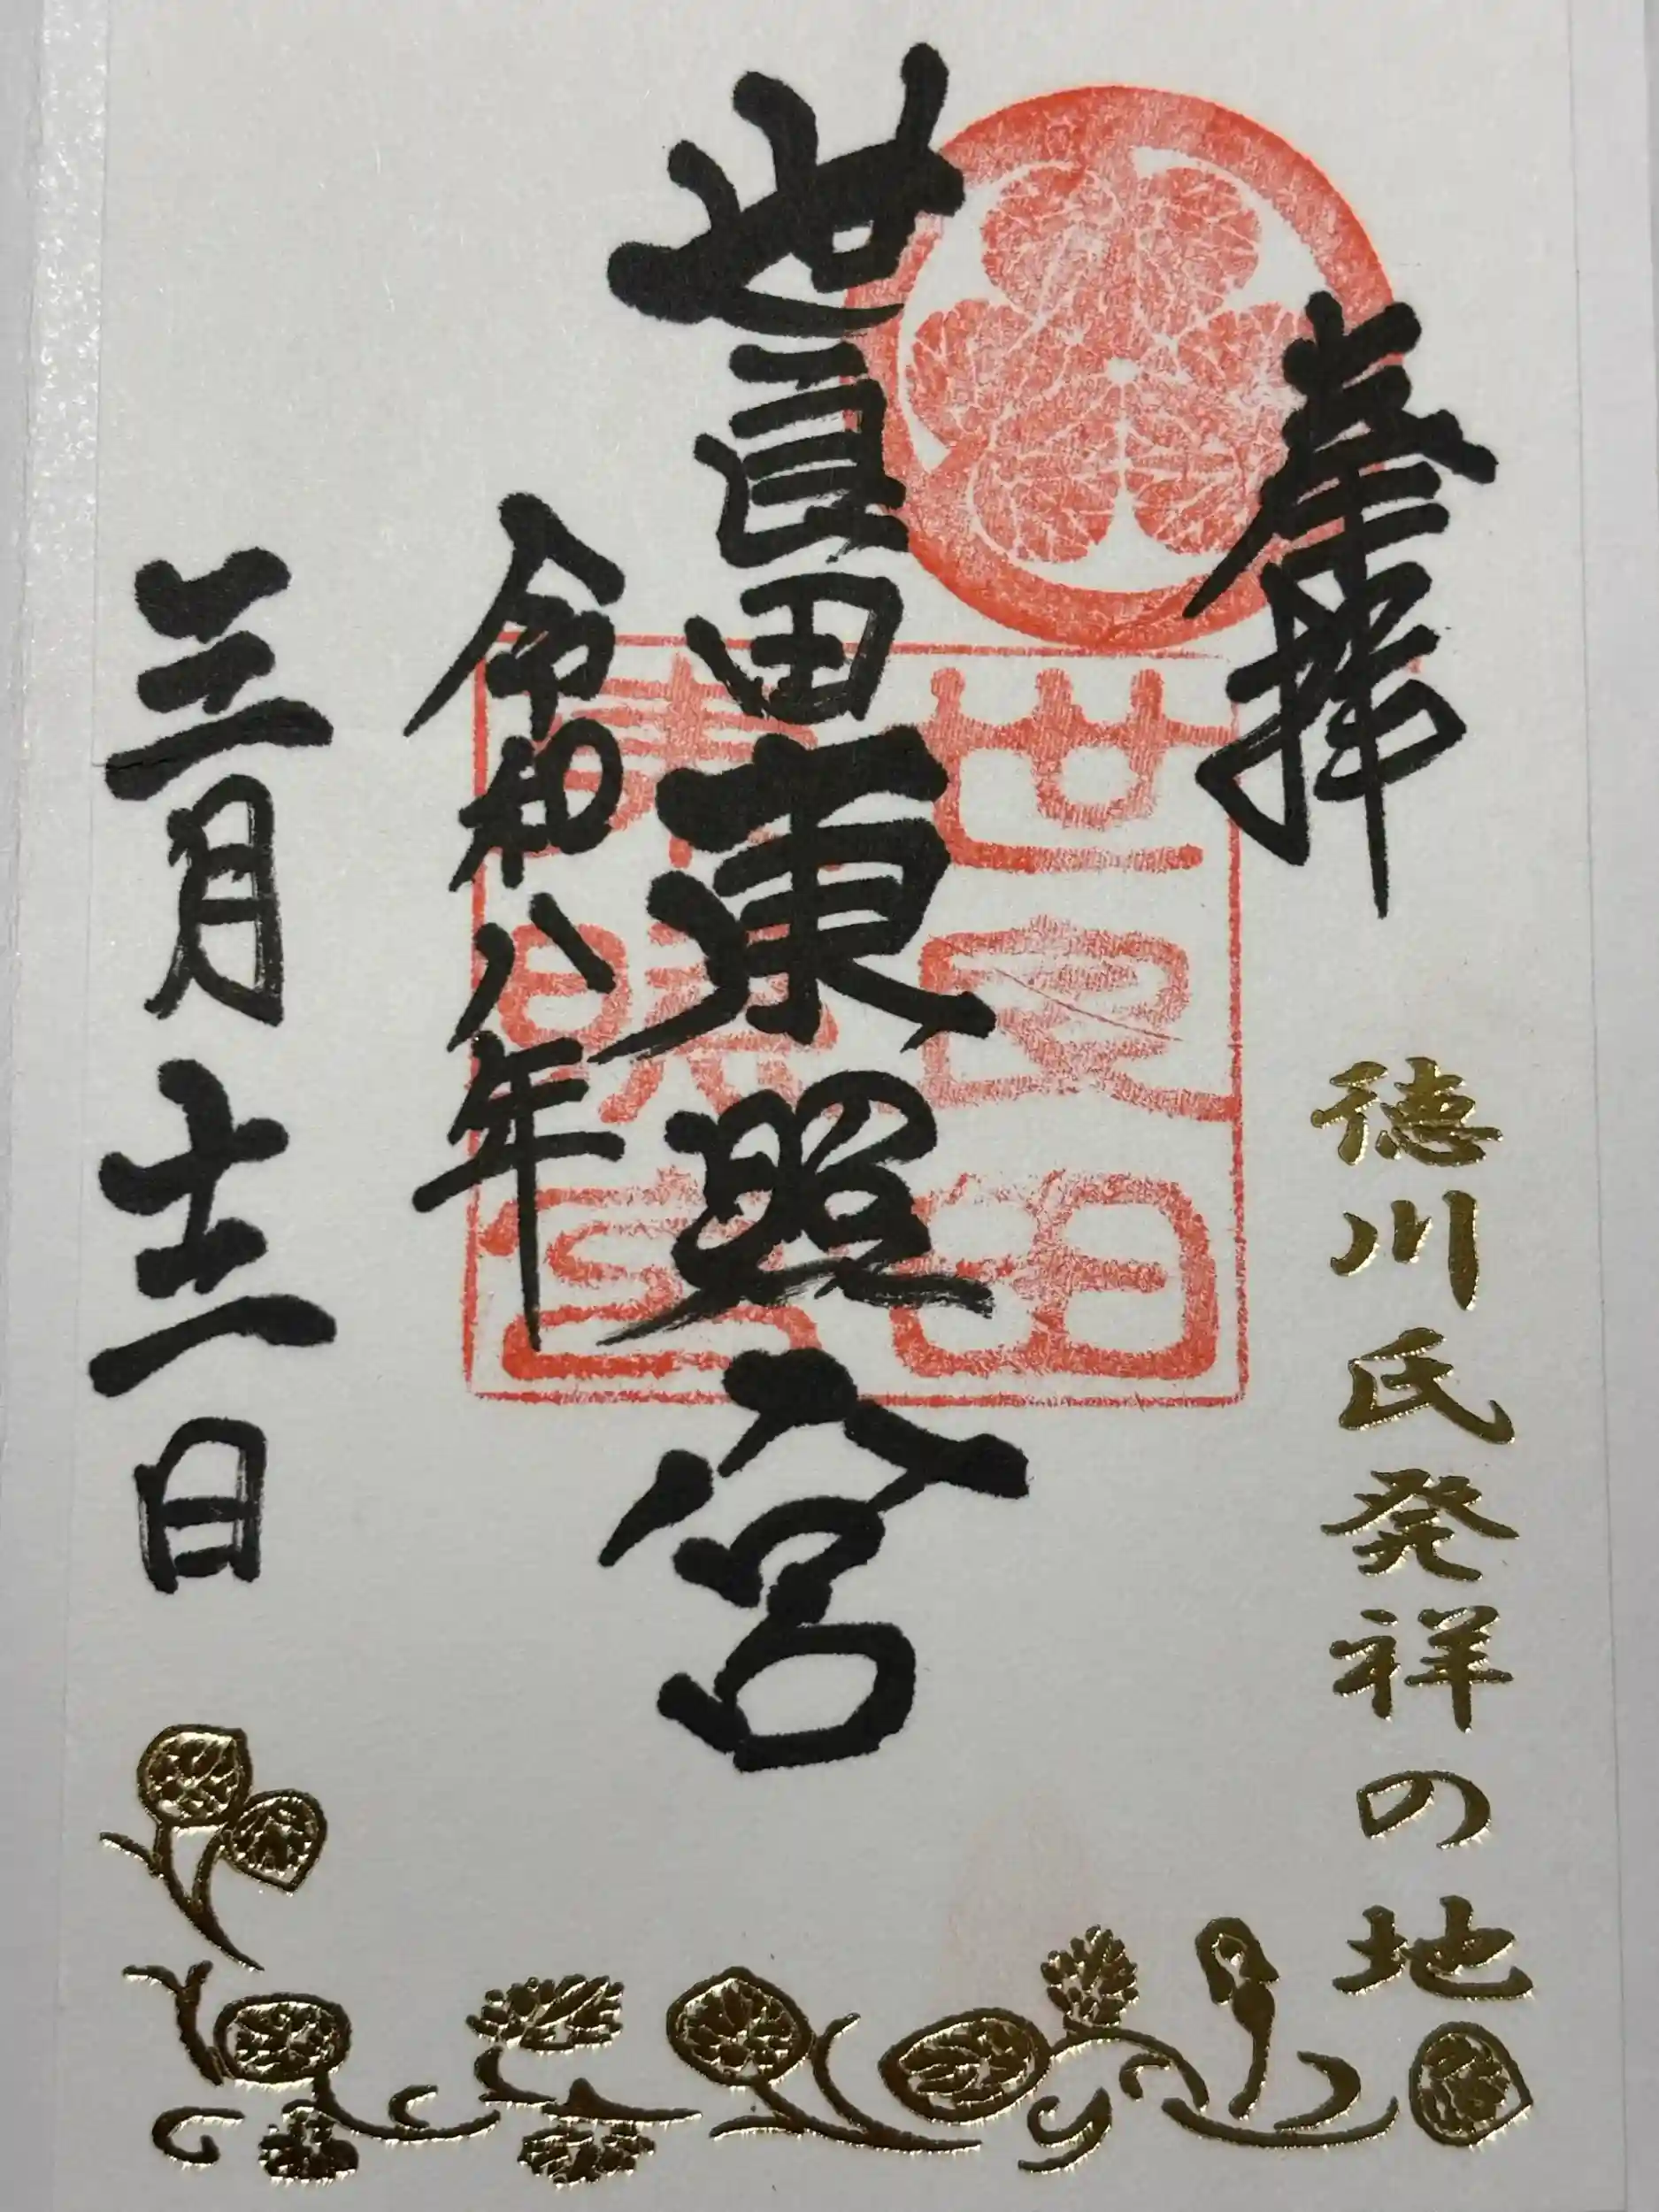 奉拝
徳川氏発祥の地
世良田東照宮
世良田
東照宮
令和八年
三月十二日